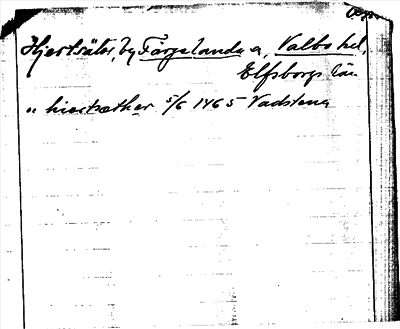 Hjertsäter, by Färgelanda a, Valbo hd,
Elfsborgs län
„ hiertsæther 5/6 1465 Vadstena